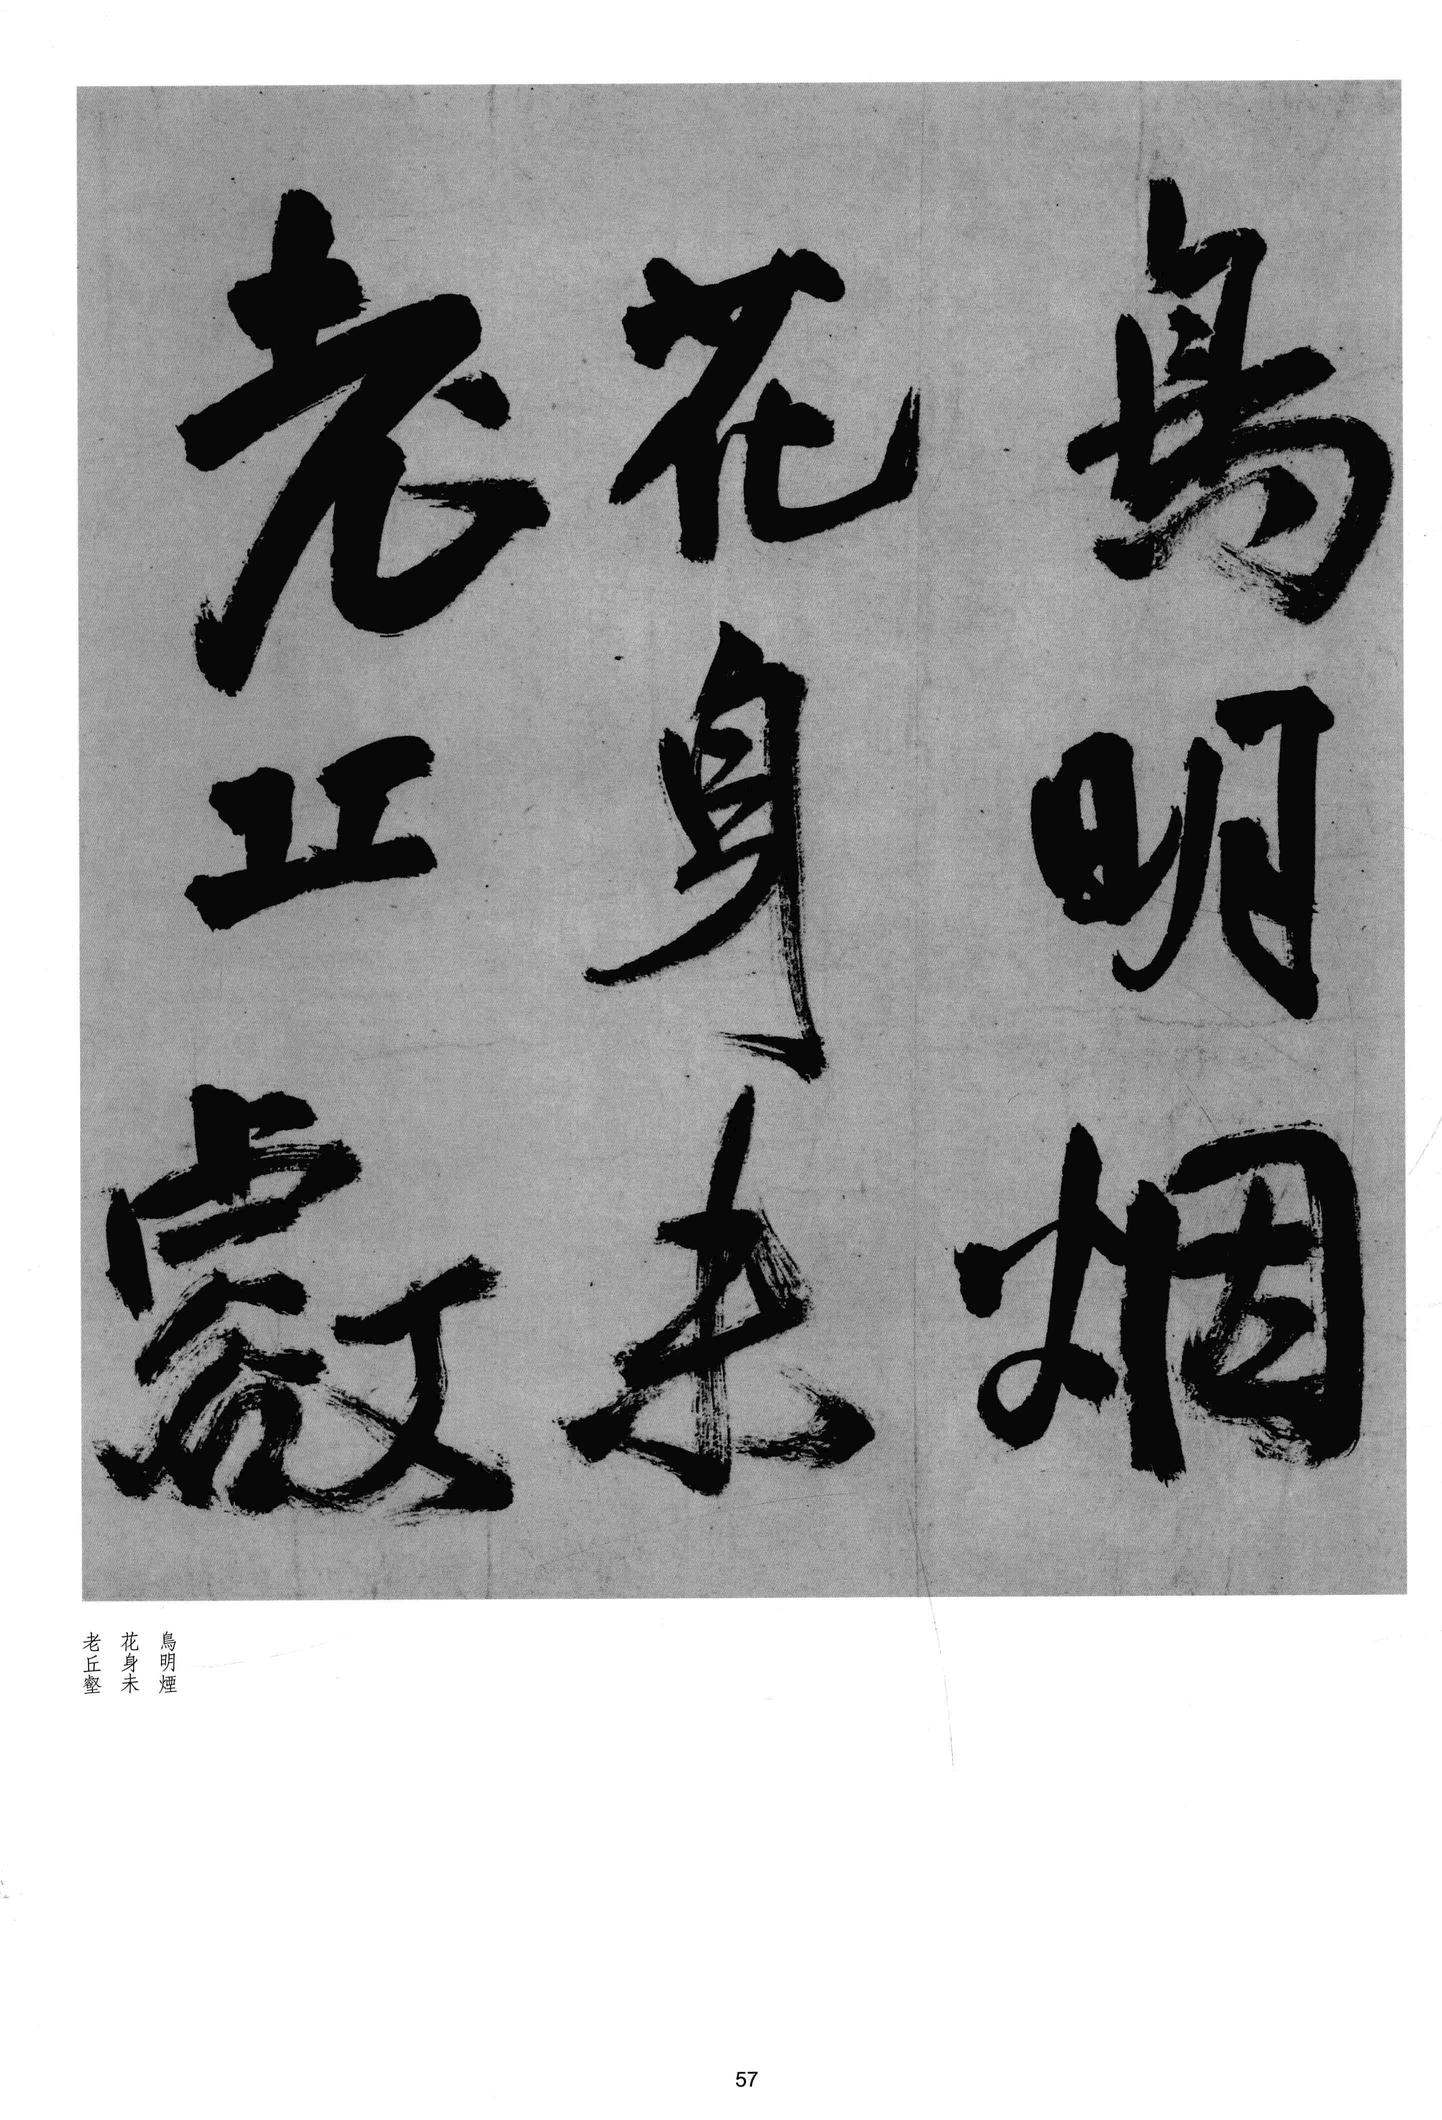 鳥明烟
花身未
老丘壑
鳥明煙
花身未
老丘壑
57